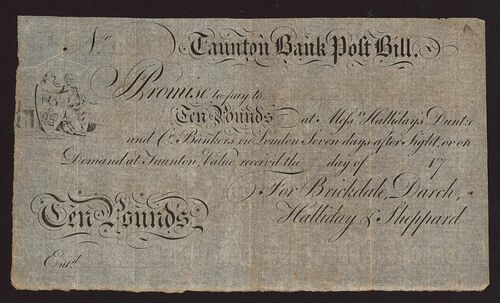 No.
Taunton Bank Post Bill.
Promise to pay to
Ten Pounds at Messrs. Halliday's Duntze
and Co. Bankers in London Seven days after Sight, or on
Demand at Taunton, Value received the day of 17
For Brickdale, Darch,
Halliday & Sheppard
Ten Pounds.
Entd.